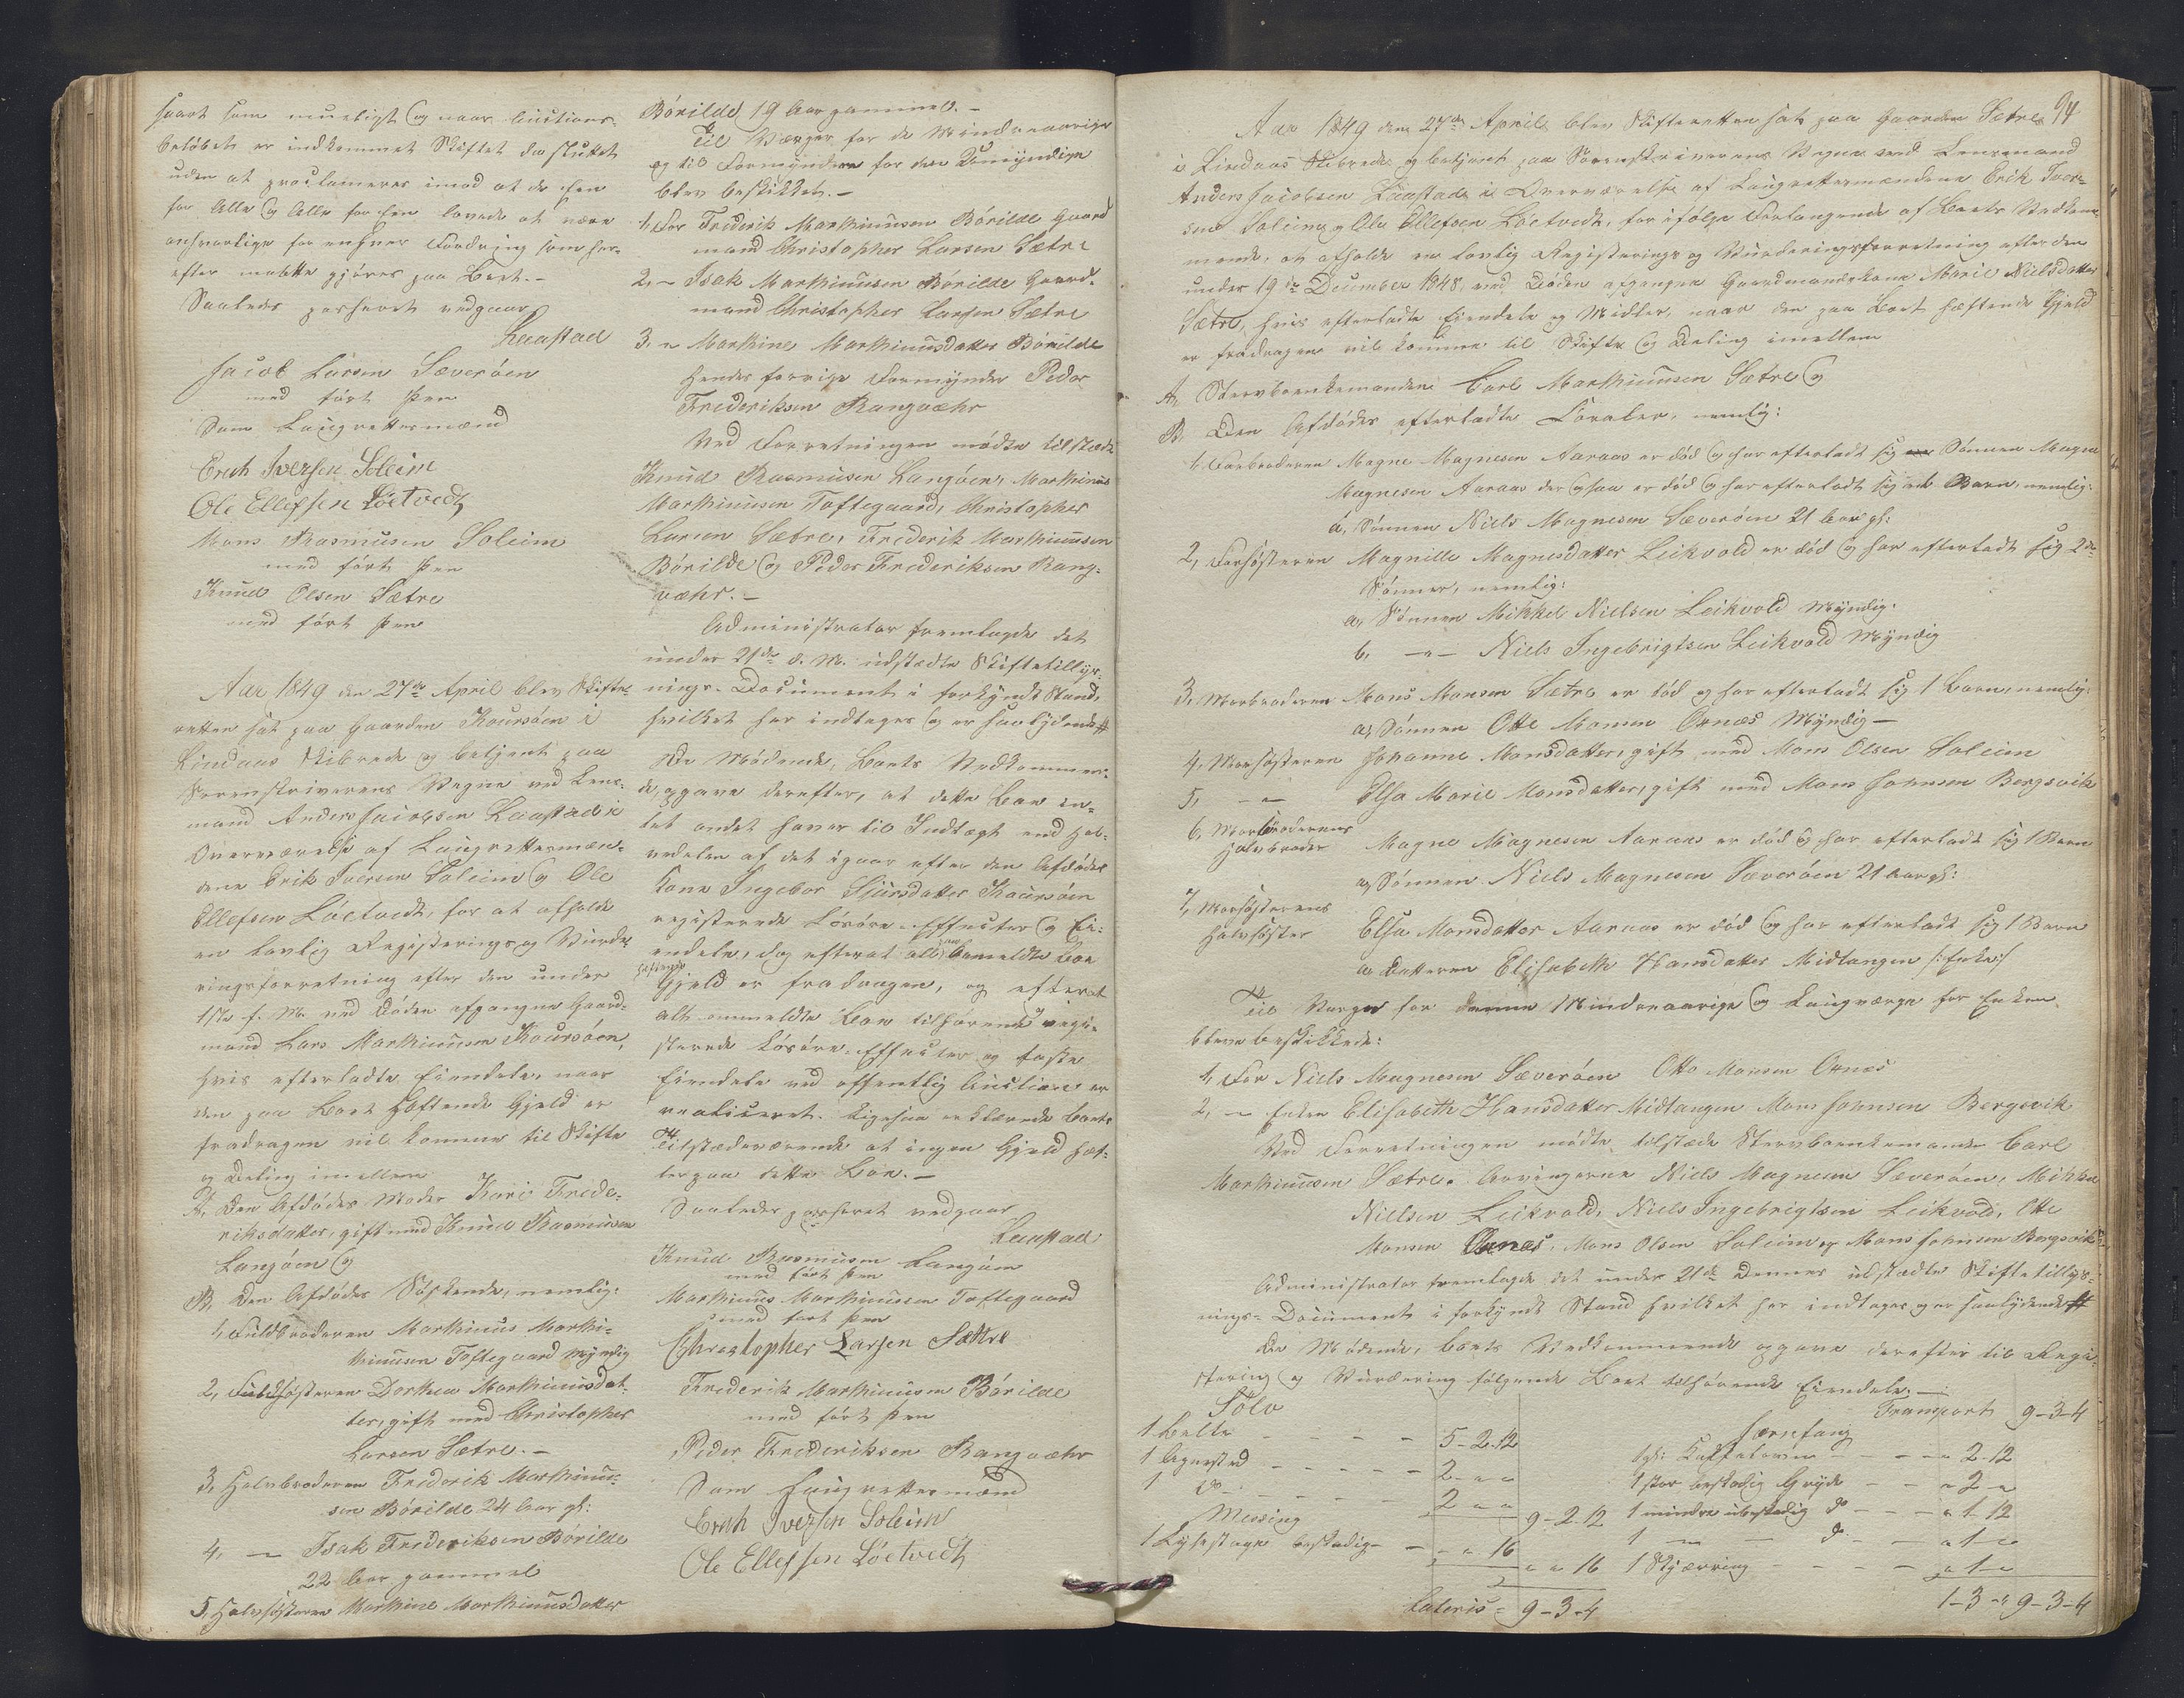 snart som mueligt og naar Auctions-
beløbet er indkommet Skiftet da sluttet
uden at proclameres imod at de Een
for Alle og Alle for Een lovede at være
ansvarlige for enhver Fordring som her-
efter maatte gjøres paa Boet.-
Saaledes passeret vedgaaer
Kaastad
Jacob Larsen Sæverøen
med ført Pen
Som Laugrettesmænd
Erich Iversen Soleim
Ole Ellefsen Löetvedt
Mons Rasmusen Soleim
med ført Pen
Knud Olsen Sætre
med ført Pen
Aar 1849 den 27de April blev Skifte-
retten sat paa Gaarden Kaursøen i
Lindaas Skibrede og betjent paa
Sorenskriverens Vegne ved Lens-
mand Anders Jacobsen Kaastad i
Overværelse af Laugrettesmæn-
dene Erik Iversen Soleim og Ole
Ellefsen Löetvedt, for at afholde
en lovlig Registerings og Vurde-
ringsforretning efter den under
1ste f. M. ved Døden afgangne Gaard-
mand Lars Marthinusen Kaursøen,
hvis efterladte Eiendele, naar
den paa Boet hæftende Gjeld er
fradragen vil komme til Skifte
og Deling imellem
A, Den Afdødes Moder Kari Frede-
riksdatter, gift med Knud Rasmusen
Langøen og
B, Den Afdødes Søskende, nemlig:
1, Fuldbroderen Marthinus Marthi-
nusen Toftegaard Myndig
2, Fuldsøsteren Dorthea Marthinusdat-
ter, gift med Christopher
Larsen Sætre.-
3, Halvbroderen Frederik Marthinu-
sen Børilde 24 Aar gl:
4, — Isak Frederiksen Børilde
22 Aar gammel
5, Halvsøsteren Marthine Marthinusdatter
Børilde 19 Aar gammel.-
Til Værger for de Mindreaarige
og til Formyndere for den Umyndige
blev beskikket.-
1, For Frederik Marthinusen Børilde Gaard
mand Christopher Larsen Sætre
2, — Isak Marthinusen Børilde Gaard-
mand Christopher Larsen Sætre
3, — Marthine Marthinusdatter Børilde
hendes forrige Formynder Peder
Frederiksen Rangvæhr
Ved Forretningen mødte tilstæde
Knud Rasmusen Langøen, Marthinus
Marthinusen Toftegaard, Christopher
Larsen Sætre, Frederik Marthinusen
Børilde og Peder Frederiksen Rang-
væhr.-
Administrator fremlagde det
under 21de d. M. udstædte Skiftetillys-
nings-Document i forkyndt Stand,
hvilket her indtages og er saalydende #
De Mødende, Boets Vedkommen-
de, opgave derefter, at dette Boe in-
tet andet haver til Indtægt end Hal-
vedelen af det igaar efter den Afdødes
Kone Ingebor Sjursdatter Kaursøen
registerede Løsøre-Effecter og Ei-
endele, dog efterat al bemeldte Boe
Gjeld er fradragen, og efterat
alt anmeldte Boe tilhørende regi-
sterede Løsøre-Effecter og faste
Eiendele ved offentlig Auction er
realiseret. Ligesaa erklærede Boets
Tilstædeværende at ingen Gjeld hæf-
ter paa dette Boe.-
Saaledes passeret vedgaaer
Kaastad
Knud Rasmusen Langøen
med ført Pen
Marthinus Marthinusen Toftegaard
med ført Pen
Christopher Larsen Sættre
Frederik Marthinusen Børilde
med ført Pen
Peder Frederiksen Rangvæhr
Som Laugrettesmænd
Erich Iversen Soleim
Ole Ellefsen Löetvedt
94
Aar 1849 den 27de April blev Skifteretten sat paa Gaarden Sætre
i Lindaas Skibrede og betjent paa Sorenskriverens Vegne ved Lensmand
Anders Jacobsen Kaastad i Overværelse af Laugrettesmændene Erik Iver-
sen Soleim og Ole Ellefsen Löetvedt, for ifølge Forlangende af Boets Vedkom-
mende, at afholde en lovlig Registerings og Vurderingsforretning efter den
under 19de December 1848, ved Døden afgangne Gaardmandskone Marie Nielsdatter
Sætre, hvis efterladte Eiendele og Midler, naar den paa Boet hæftende Gjeld
er fradragen vil komme til Skifte og Deling imellem
A, Stervboenkemanden Carl Marthinusen Sætre og
B, Den Afdødes efterladte Loraber, nemlig:
1, Farbroderen Magne Magnesen Aaraas er død og har efterladt sig Sønnen Magne
Magnesen Aaraas der ogsaa er død og har efterladt sig et Barn, nemlig:
a, Sønnen Niels Magnesen Sæverøen 21 Aar gl:
2, Farsøsteren Magnille Magnesdatter Leikvold er død og har efterladt sig 2de
Sønner, nemlig:
a, Sønnen Mikkel Nielsen Leikvold Myndig.
b, —"— Niels Ingebrigtsen Leikvold Myndig
3, Morbroderen Mons Monsen Sætre er død og har efterladt sig 1 Barn, nemlig:
a, Sønnen Otte Monsen Ornæs Myndig —
4, Morsøsteren Johanne Monsdatter, gift med Mons Olsen Soleim
5, —"— Elsa Marie Monsdatter, gift med Mons Johnsen Bergsvik
6, Morbroderens
Halvbroder Magne Magnesen Aaraas er død og har efterladt sig 1 Barn
a, Sønnen Niels Magnesen Sæverøen 21 Aar gl:
7, Morsøsterens
Halvsøster Elsa Monsdatter Aaraas er død og har efterladt sig 1 Barn
a, Datteren Elisabeth Hansdatter Midtangen /: Enke :/
Til Værger for denne Mindreaarige og Laugværge for Enken
bleve beskikkede:
1, For Niels Magnesen Sæverøen Otte Monsen Ornæs
2, — Enken Elisabeth Hansdatter Midtangen Mons Johnsen Bergsvik
Ved Forretningen mødte tilstæde Stervboenkemanden Carl
Marthinusen Sætre. Arvingerne Niels Magnesen Sæverøen, Mikkel
Nielsen Leikvold, Niels Ingebrigtsen Leikvold, Otte
Monsen Ornæs, Mons Olsen Soleim og Mons Johnsen Bergsvik.
Administrator fremlagde det under 21de dennes udstædte Skiftetillys-
nings-Document i forkyndt Stand hvilket her indtages og er saalydende #
De Mødende, Boets Vedkommende opgave derefter til Regi-
stering og Vurdering følgende Boet tilhørende Eiendele.—
Sølv
1 Belte - - - - 5-2-12
1 - - - - - 2 - " - "
1 do - - - - - 2 " " 9-2-12
Messing
1 Lysestage beskadig - - " 16 " " 16
Lateris = 9-3-4
Transport 9-3-4
Jernfang
1 gl: - - - " 2-12
1 stor beskadig Gryde - - " 2 "
1 mindre ubeskadig do - - - " 1-12
1 — — do - - " 1 - "
1 Skjærring - - - - " 1 - "
1-3-" 9-3-4